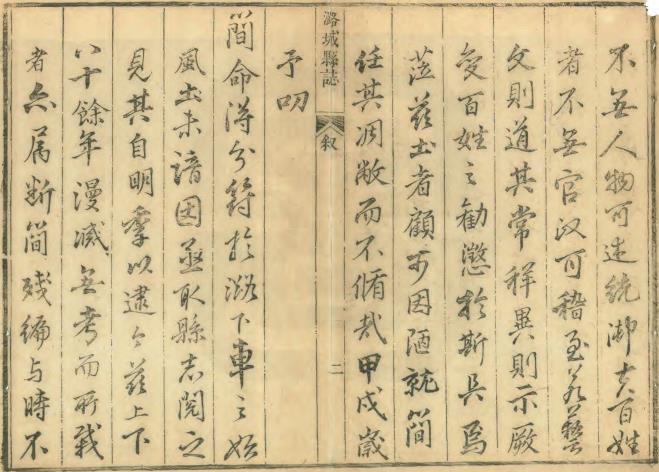 不無人物可述統御夫百姓
者不無官政可稽至若藝
文則道其常祥異則示厥
變百姓之勸懲於斯具焉
蒞茲土者顧可因陋就簡
任其凋敝而不脩哉甲戌歲
予叨
潞城縣誌
叙
二
簡命得分符於潞下車之始
風土未諳因亟取縣志閱之
見其自明季以逮今茲上下
八十餘年漫滅無考而所載
者亦屬斷簡殘編与時不